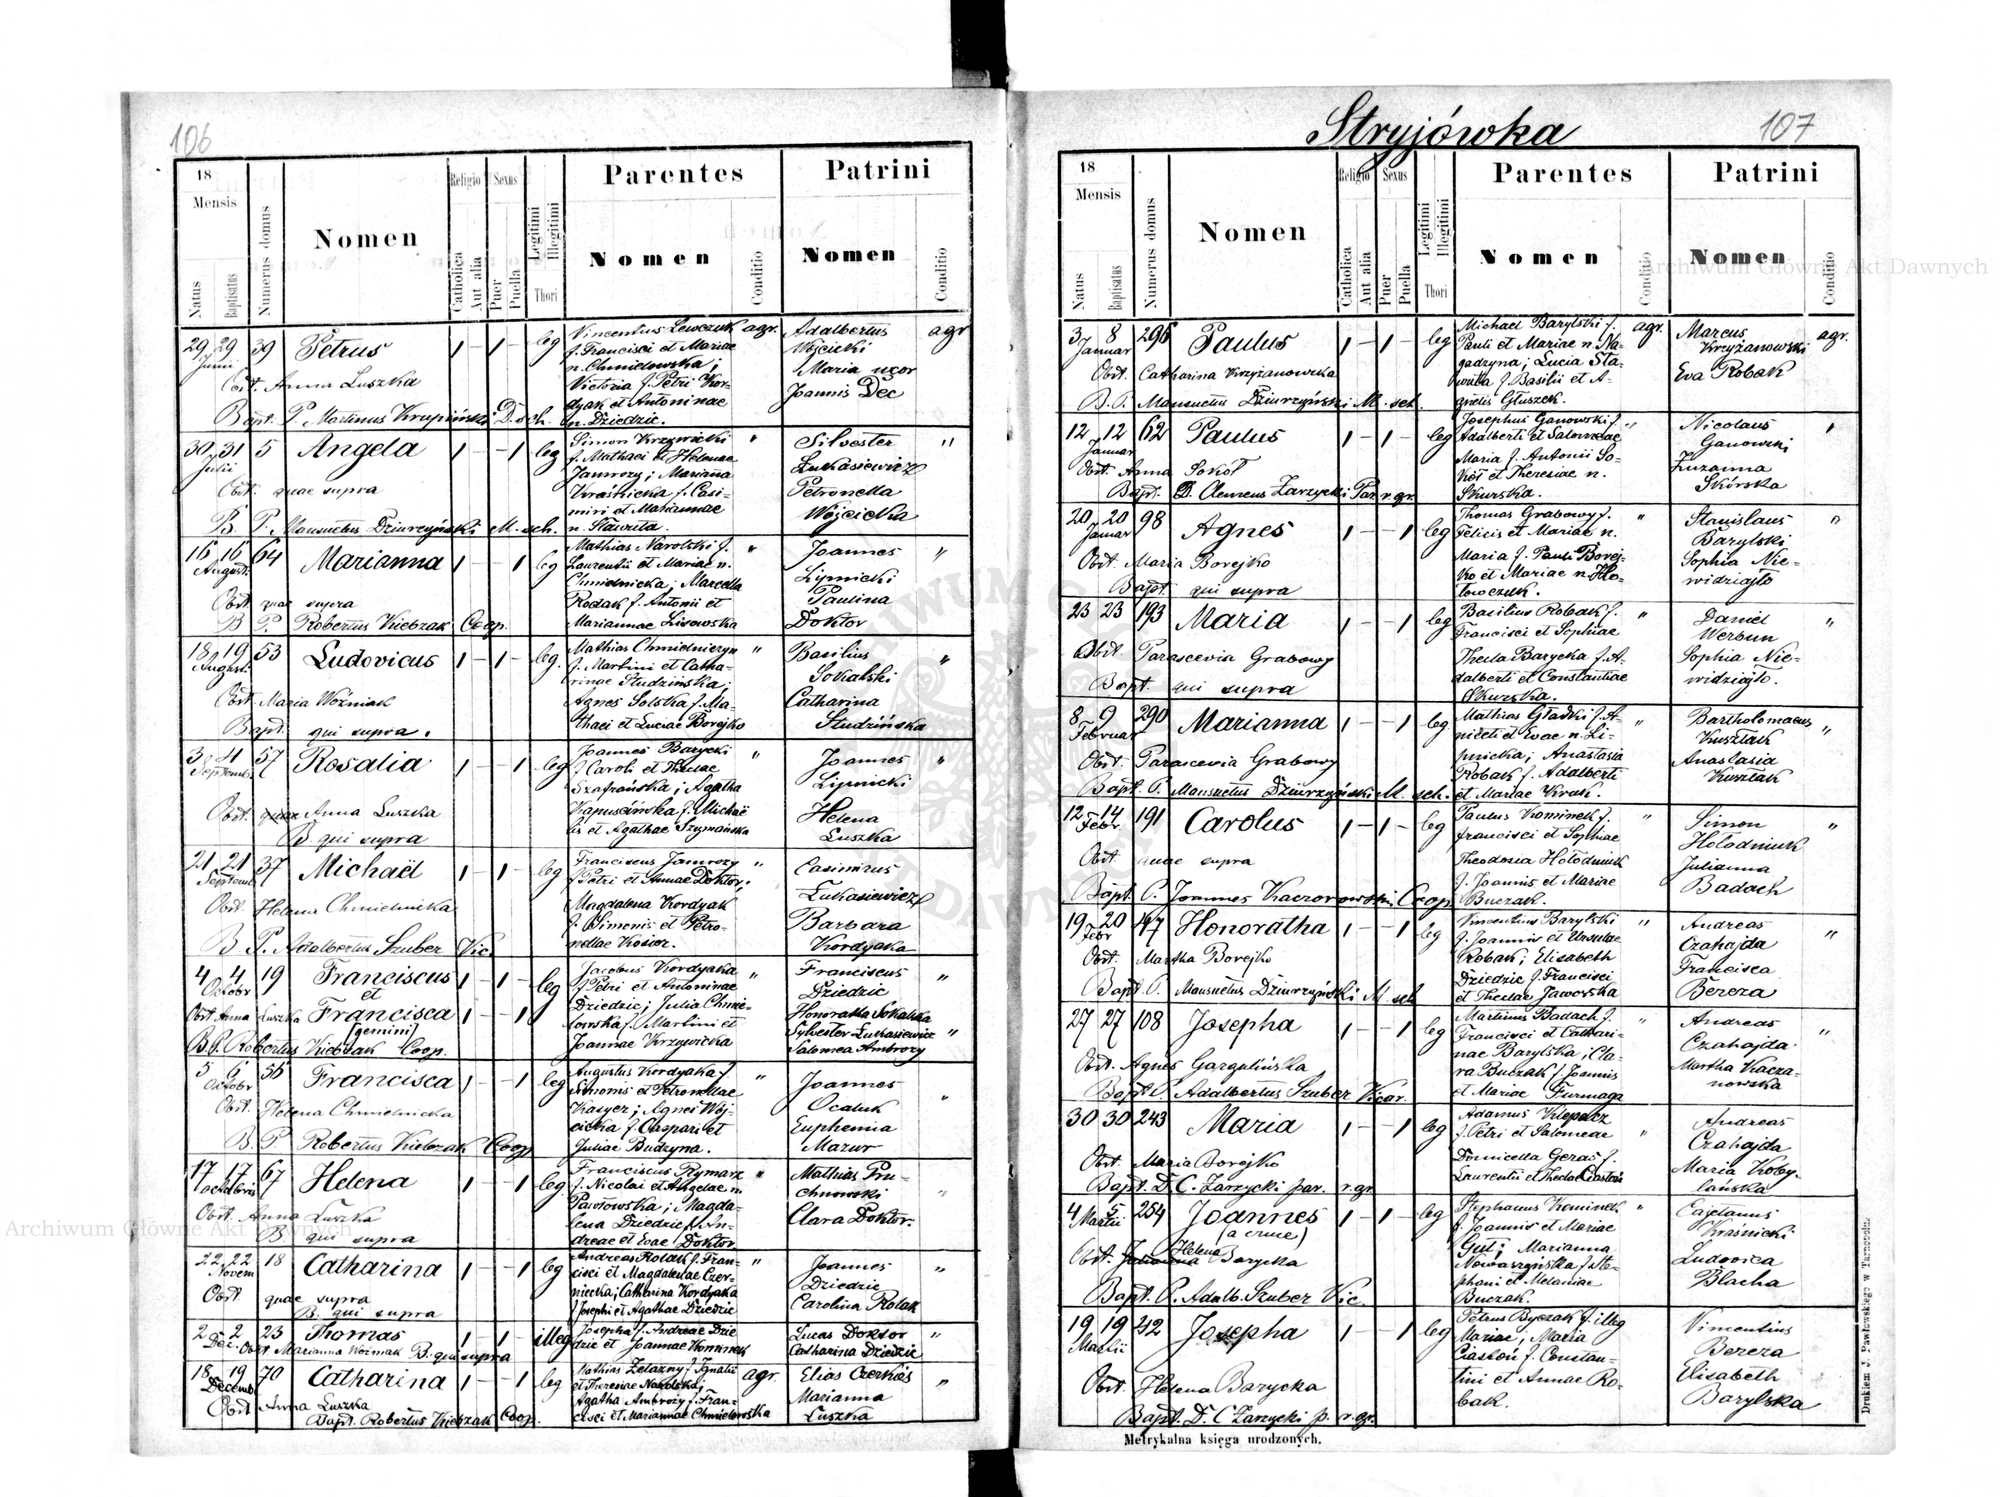 106
18
Mensis
Natus
Baptisatus
Numerus domus
Nomen
Religio
Catholica
Aut alia
Sexus
Puer
Puella
Legitimi
Illegitimi
Thori
Parentes
Nomen
Conditio
Patrini
Nomen
Conditio
29 29 39 Petrus 1 - 1 - leg
Junii
Obst. Anna Luszka
Bapt. P. Martinus Krupiński D. sch.
Vincentius Lewczuk agr.
f. Francisci et Mariae
n. Chmielowska;
Victoria f. Petri Kor-
dyak et Antoninae
n. Dziedzic.
Adalbertus agr
Wójcicki
Maria uxor
Joannis Dec
30 31 5 Angela 1 - - 1 leg
Julii
Obst. quae supra
B. P. Mansuetus Dziurzyński M. sch.
Simon Krzywicki "
f. Mathaei et Helenae
Jamrozy; Marianna
Kraśnicka f. Casi-
miri et Mariannae
n. Hawryła.
Silvester "
Łukasiewicz
Petronella
Wójcicka
16 16 64 Marianna 1 - - 1 leg
August.
Obst. quae supra
B P. Robertus Kiebzak Coop.
Mathias Narolski f. "
Laurentii et Mariae n.
Chmielnicka; Marcella
Rodak f. Antonii et
Mariannae Lisowska
Joannes "
Lipnicki
Paulina
Doktor
18 19 53 Ludovicus 1 - 1 - leg.
August.
Obst. Maria Woźniak
Bapt. qui supra.
Mathias Chmielniczyn "
f. Martini et Catha-
rinae Studzińska;
Agnes Solska f. Ma-
thaei et Luciae Borejko
Basilius "
Sokalski
Catharina
Studzińska
3 4 57 Rosalia 1 - - 1 leg
Septemb.
Obst. Anna Luszka
B. qui supra
Joannes Barycki "
f. Caroli et Theclae
Szafrańska; Agatha
Kapuścińska f. Micha-
lis et Agathae Szymańska
Joannes "
Lipnicki
Helena
Luszka
21 21 37 Michaël 1 - 1 - leg
Septemb.
Obst. Helena Chmielnicka
B. P. Adalbertus Szuber Vic.
Franciscus Jamrozy "
f. Petri et Annae Doktor;
Magdalena Kordyak
f. Simonis et Petro-
nellae Kosior.
Casimirus
Łukasiewicz
Barbara
Kordyaka
4 4 19 Franciscus 1 - 1 - leg
Octobr et
Obst. Anna Luszka Francisca 1 - - 1
(gemini)
B. P. Robertus Kiebzak Coop.
Jacobus Kordyaka "
f. Petri et Antoninae
Dziedzic; Julia Chmie-
lowska f. Martini et
Joannae Krzywicka
Franciscus "
Dziedzic
Honoratha Sokalska
Sylvester Łukasiewicz "
Salomea Ambrozy
5 6 55 Francisca 1 - - 1 leg
Octobr
Obst. Helena Chmielnicka
B. P. Robertus Kiebzak Coop
Augustus Kordyaka f "
Simonis et Petronellae
Kasyez; Agnes Wój-
cicka f. Caspari et
Juliae Budzyna.
Joannes "
Ocaluk
Euphemia
Mazur
17 17 67 Helena 1 - - 1 leg
octobris
Obst. Anna Luszka
B. qui supra
Franciscus Rymarz "
f. Nicolai et Angelae n.
Pawłowska; Magda-
lena Dziedzic f. An-
dreae et Evae Doktor.
Mathias Pru-
chnowski "
Clara Doktor.
22 22 18 Catharina 1 - - 1 leg
Novem
Obst. quae supra
B. qui supra
Andreas Rolak f. Fran- "
cisci et Magdalenae Czer-
niecka; Catharina Kordyaka
f. Josephi et Agathae Dziedzic
Joannes "
Dziedzic
Carolina Rolak
2 2 23 Thomas 1 - 1 - illeg
Dec. Obst. Marianna Woźniak B. qui supra
Josepha f. Andreae Dzie
dzic et Joannae Kominek
Lucas Doktor "
Catharina Dziedzic
18 19 70 Catharina 1 - - 1 leg
Decemb
Obst. Anna Luszka
Bapt. Robertus Kiebzak Coop.
Mathias Zelazny f. Ignatii agr.
et Theresiae Narolska;
Agatha Ambrozy f. Fran-
cisci et Mariannae Chmielowska
Elias Czerkas "
Marianna
Luszka
Stryjówka
107
18
Mensis
Natus
Baptisatus
Numerus domus
Nomen
Religio
Catholica
Aut alia
Sexus
Puer
Puella
Legitimi
Illegitimi
Thori
Parentes
Nomen
Conditio
Patrini
Nomen
Conditio
3 8 296 Paulus 1 - 1 - leg
Januar
Obst. Catharina Krzyżanowska
B. P. Mansuetus Dziurzyński M. sch.
Michael Barylski f. agr.
Pauli et Mariae n. Na-
gadzyna; Lucia Sta-
wula f. Basilii et A-
gnetis Głuszek.
Marcus agr.
Krzyżanowski
Eva Robak
12 12 62 Paulus 1 - 1 - leg
Januar
Obst. Anna Sokół
Bapt. D. Clemens Zarzycki Par r. gr.
Josephus Ganowski f. "
Adalberti et Salomeae
Maria f. Antonii So-
kół et Theresiae n.
Skurska.
Nicolaus "
Ganowski
Zuzanna
Skórska
20 20 98 Agnes 1 - - 1 leg
Januar
Obst. Maria Borejko
Bapt. qui supra
Thomas Grabowy f. "
Felicis et Mariae n.
Maria f. Pauli Borej-
ko et Mariae n. Hło-
towczuk.
Stanislaus "
Barylski
Sophia Nie-
widziajło
23 23 193 Maria 1 - - 1 leg
Obst. Parascevia Grabowy
Bapt. qui supra
Basilius Robak f. "
Francisci et Sophiae
Thecla Barycka f. A-
dalberti et Constantiae
Skurska.
Daniel "
Werbun
Sophia Nie-
widziajło.
8 9 290 Marianna 1 - - 1 leg
Februar
Obst. Parascevia Grabowy
Bapt. P. Mansuetus Dziurzyński M. sch.
Mathias Gładki f. A- "
niceti et Evae n. Li-
pnicka; Anastasia
Robak f. Adalberti
et Mariae Krok.
Bartholomaeus "
Kusztak
Anastasia
Kusztak
12 14 191 Carolus 1 - 1 - leg
Febr.
Obst. quae supra
Bapt. P. Joannes Kaczorowski Coop
Paulus Kominek f. "
Francisci et Sophiae
Theodosia Hołodniuk
f. Joannis et Mariae
Buczak.
Simon "
Hołodniuk
Julianna
Badach
19 20 Honoratha 1 - - 1 leg
Febr
Obst. Martha Borejko
Bapt. P. Mansuetus Dziurzyński M. sch
Vincentius Barylski "
f. Joannis et Ursulae
Robak; Elisabeth
Dziedzic f. Francisci
et Theclae Jaworska
Andreas "
Czahajda
Francisca
Bereza
27 27 108 Josepha 1 - - 1 leg
Obst. Agnes Gargulińska
Bapt. P. Adalbertus Szuber Vicar.
Martinus Badach f. "
Francisci et Cathari-
nae Barylska; Cla-
ra Buczak f. Joannis
et Mariae Furmaga
Andreas "
Czahajda.
Martha Kacza-
nowska
30 30 243 Maria 1 - - 1 leg
Obst. Maria Borejko
Bapt. D. C. Zarzycki par. r. gr.
Adamus Klepacz
f. Petri et Salomeae "
Domicella Geras f.
Laurentii et Theclae Ciastoń
Andreas
Czahajda
Maria Koby-
lańska
4 5 254 Joannes 1 - 1 - leg
Martii (a cruce)
Obst. Helena Barycka
Bapt. P. Adalb. Szuber Vic.
Stephanus Kominek "
f. Joannis et Mariae
Gut; Marianna
Nowarzyńska f. Ste-
phani et Melaniae
Buczak.
Cajetanus
Kraśnicki
Ludovica
Blacha
19 19 212 Josepha 1 - - 1 leg
Martii
Obst. Helena Barycka
Bapt. D. C Zarzycki p. r. gr.
Petrus Byczak f. illeg
Mariae; Maria
Ciastoń f. Constan-
tini et Annae Ro-
bak.
Vincentius
Bereza
Elisabeth
Barylska
Metrykalna księga urodzonych.
Drukiem J. Pawłowskiego w Tarnopolu.
Archiwum Główne Akt Dawnych
Archiwum Główne Akt Dawnych